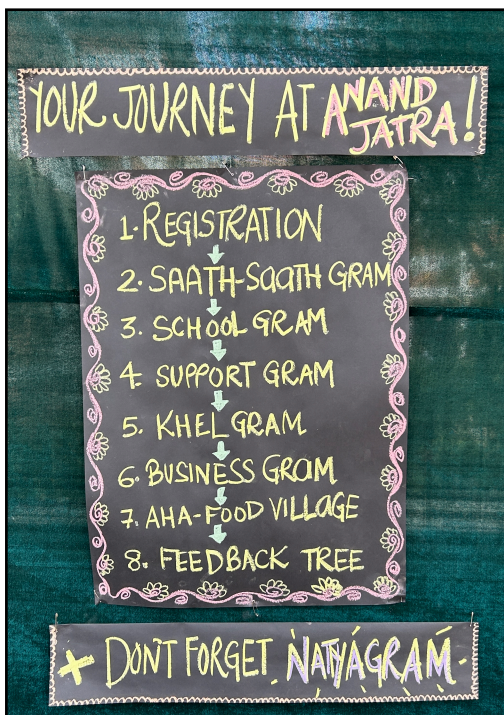 YOUR JOURNEY AT ANAND
JATRA!
1. REGISTRATION
2. SAATH-SAATH GRAM
3. SCHOOL GRAM
4. SUPPORT GRAM
5. KHEL GRAM
6. BUSINESS GRAM
7. AHA-FOOD VILLAGE
8. FEEDBACK TREE
+ DON'T FORGET NATYAGRAM